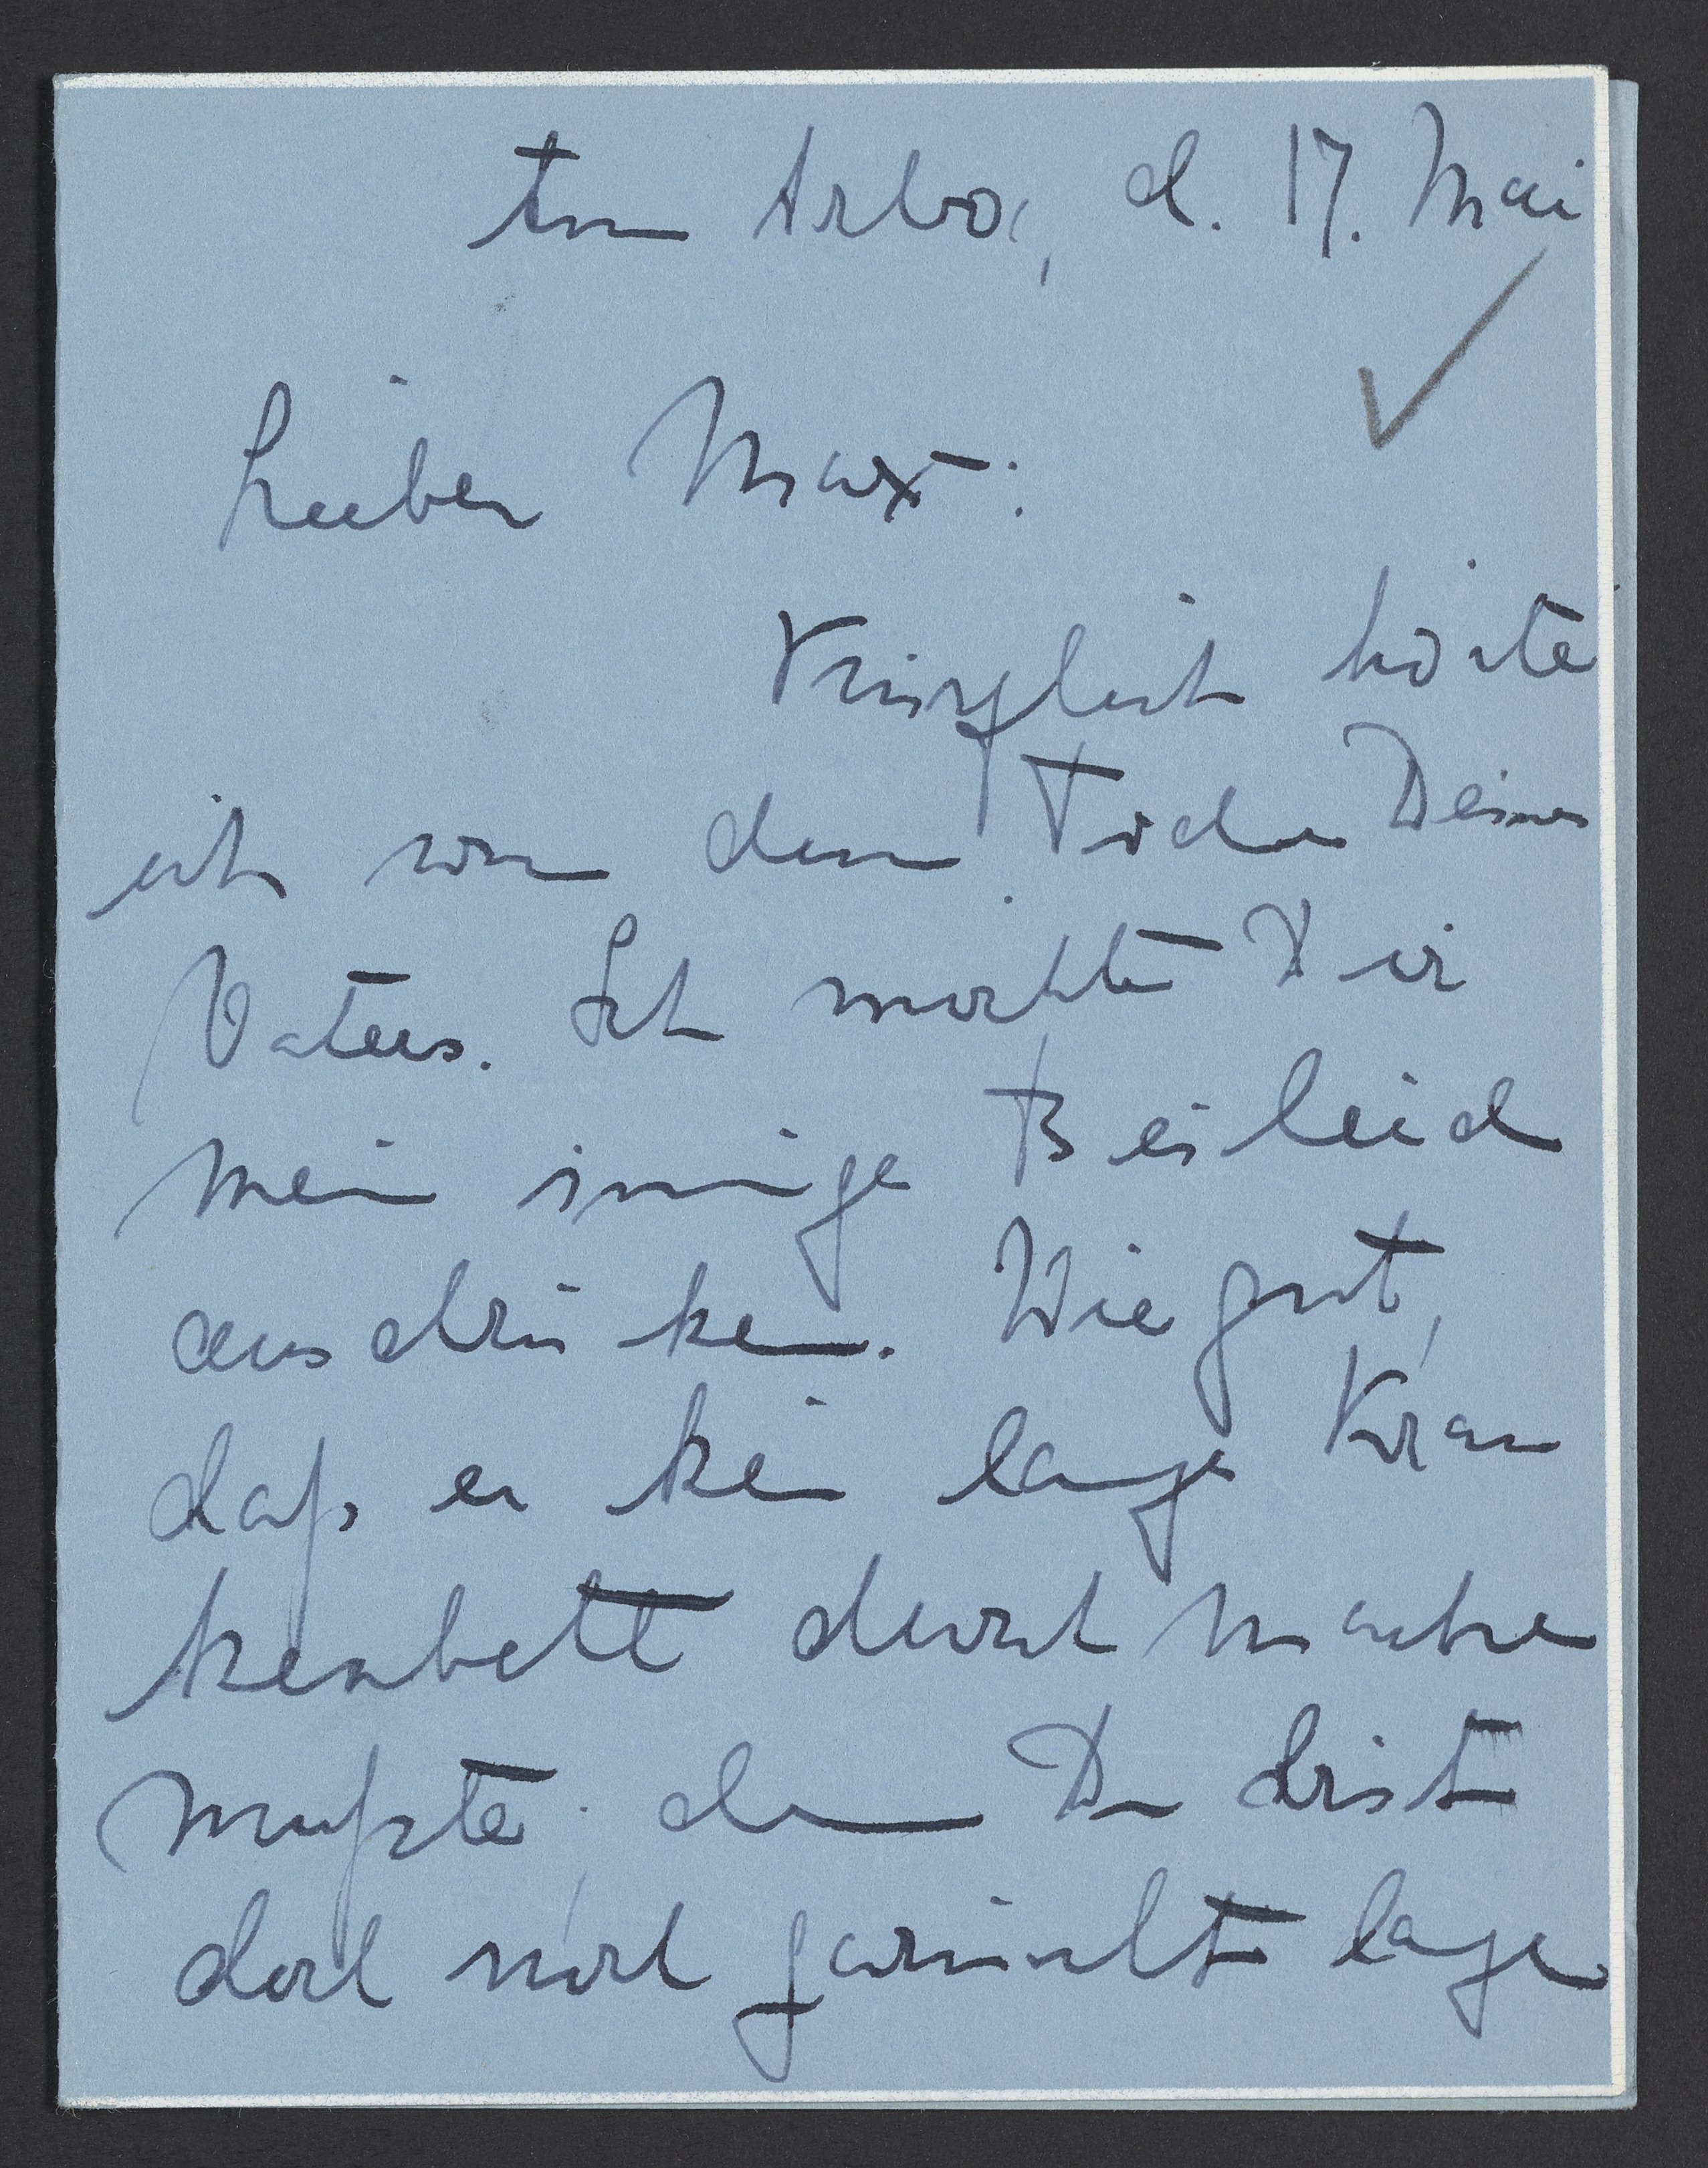 Ann Arbor, d. 17. Mai
Lieber Max:
Kürzlich hörte
ich von dem Tode Deines
Vaters. Ich möchte Dir
mein innige Beileid
ausdrücken. Wie gut,
daß er kein langes Kran
kenbett durchmachen
mußte; denn Du bist
doch noch garnicht lange